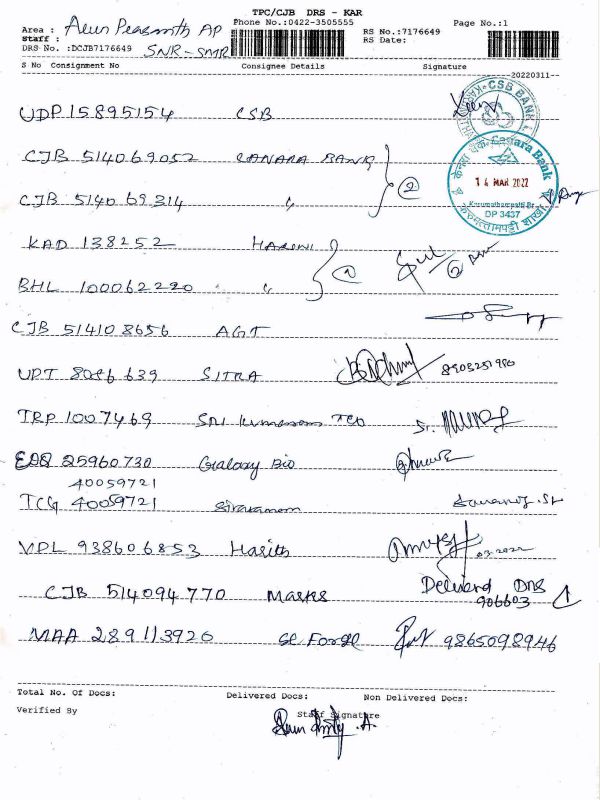 TPC/CJB DRS - KAR
Phone No.:0422-3505555 Page No.:1
Area : Arun Prasanth AP
Staff : RS No.:7176649
DRS No. :DCJB7176649 SNR-SMR RS Date:
S No Consignment No Consignee Details Signature
20220311
UDP 15895154 CSB
CSB BANK
CJB 514069052 CANARA BANK
Canara Bank
14 MAR 2022
Karumathampatti Br.
DP 3437
CJB 514069314 " 2
KAD 138252 HARINI
BHL 100062220 " 1
CJB 514108656 AGT
UPT 8086639 SITRA
TRP 1007469 SRI
EDQ 25960730 Galaxy Bio
40059721
TCG 40059721
VPL 938606853 Harith
CJB 514094770 Marks Deliverd DNS
906603
MAA 289113920 SE Forge 9865098946
Total No. Of Docs: Delivered Docs: Non Delivered Docs:
Verified By Staff Signature